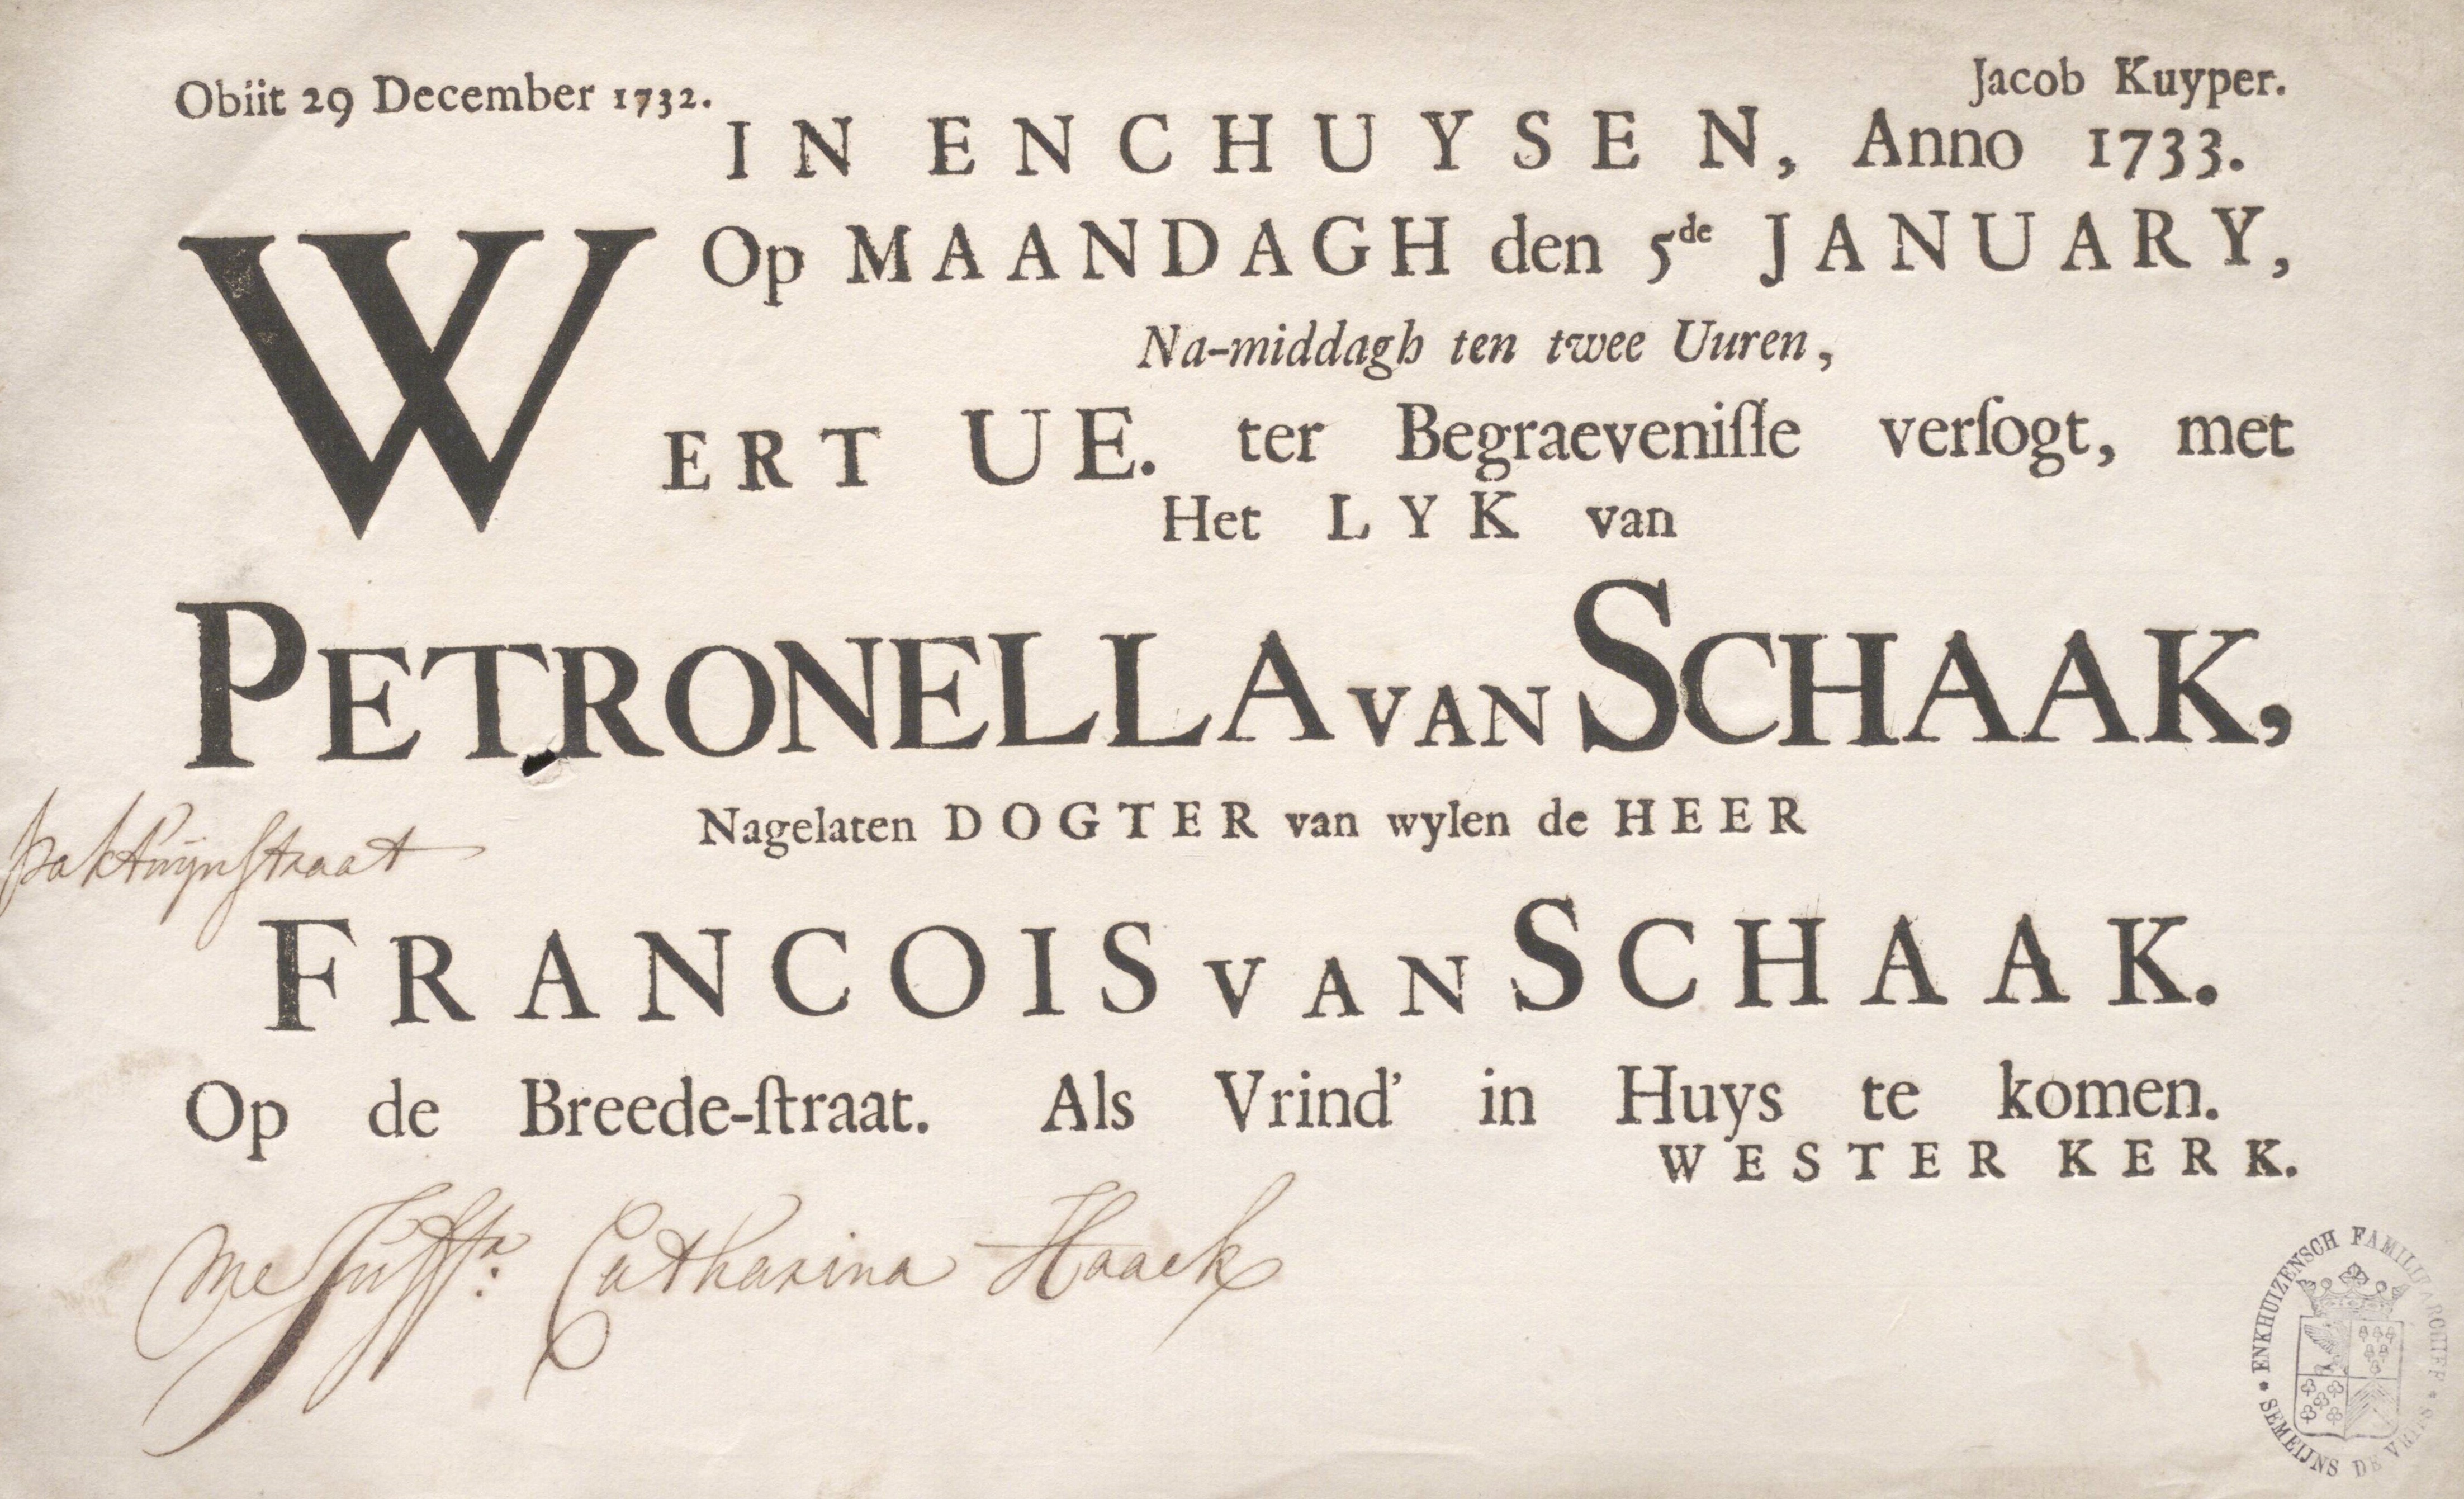 Obiit 29 December 1732.
Jacob Kuyper.
IN ENCHUYSEN, Anno 1733.
Op MAANDAGH den 5de JANUARY,
Na-middagh ten twee Uuren,
WERT UE. ter Begraeveniſſe verſogt, met
Het LYK van
PETRONELLA VAN SCHAAK,
Nagelaten DOGTER van wylen de HEER
FRANCOIS VAN SCHAAK.
Op de Breede-ſtraat. Als Vrind' in Huys te komen.
WESTER KERK.
Me Juffr: Catharina Haack
ENKHUIZENSCH FAMILIEARCHIEF * SEMEIJNS DE VRIES *